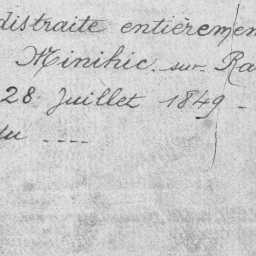 distraite entièremen
Minihic-sur-Ra
28 Juillet 1849 -
u ----